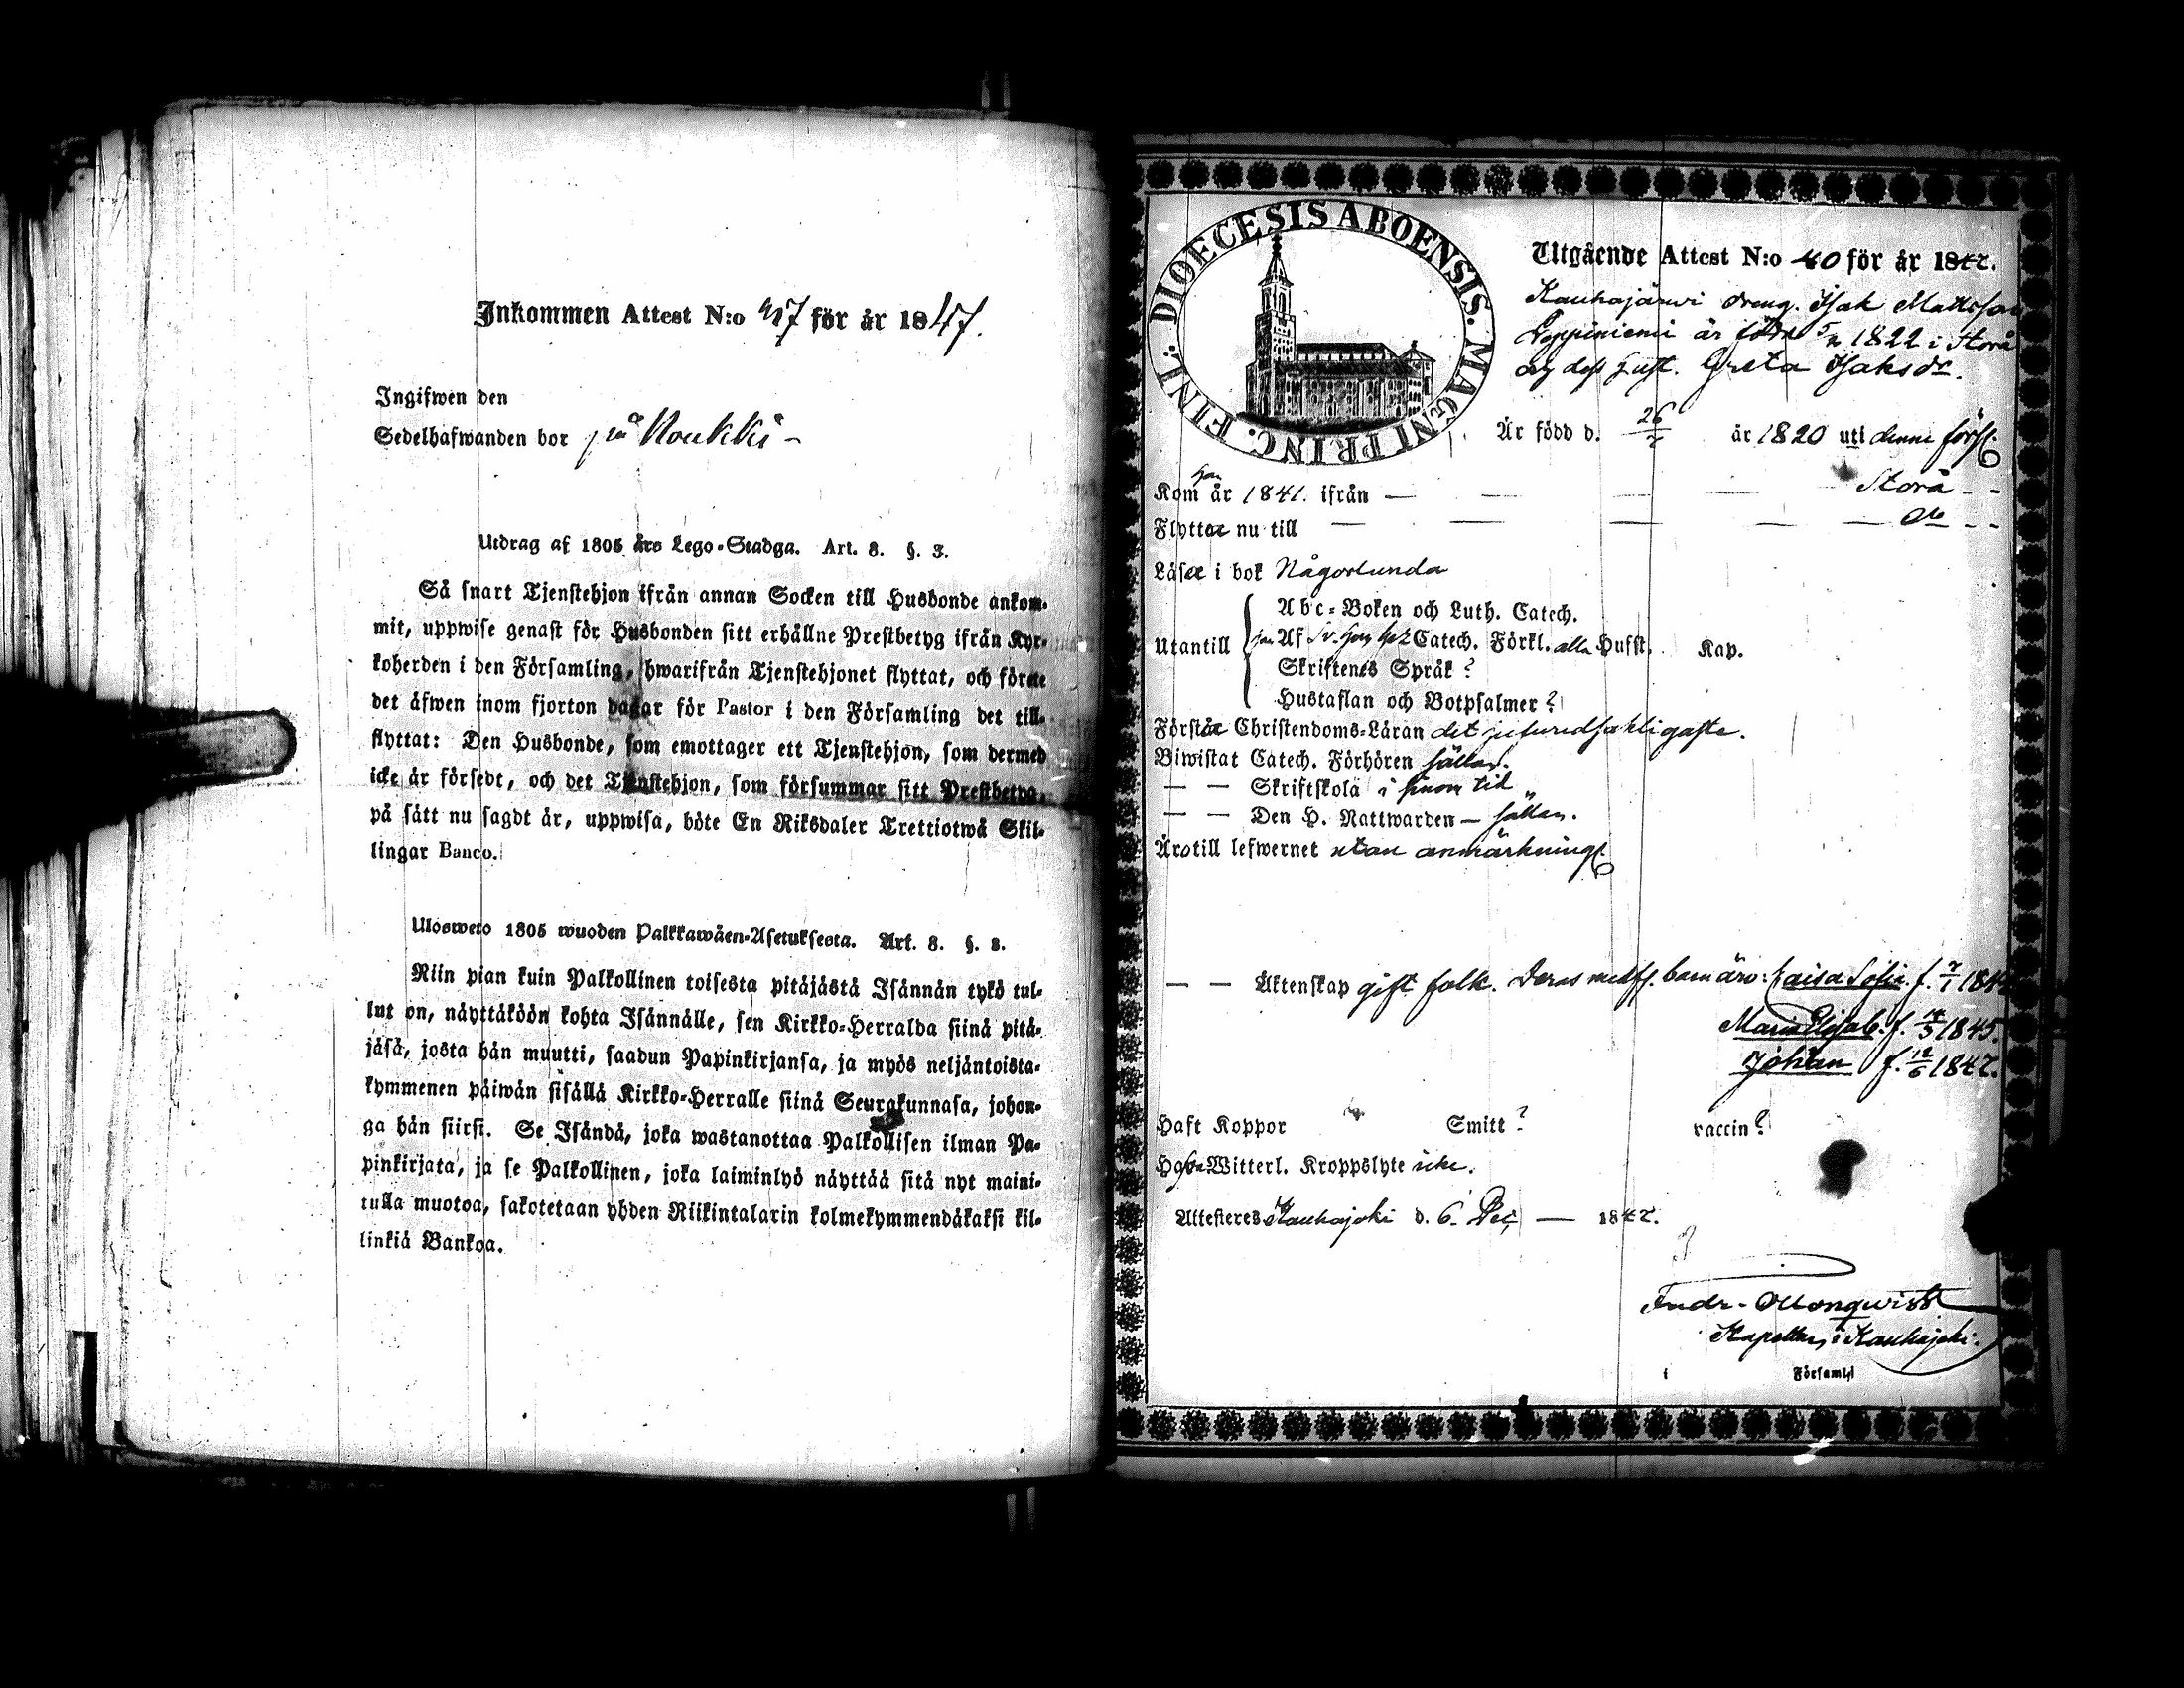 Inkommen Attest N:o 47 för år 1847.
Ingifwen den
Sedelhafwanden bor på Koukki –
Utdrag af 1805 års Lego-Stadga. Art. 8. §. 3.
Så snart Tjenstehjon ifrån annan Socken till Husbonde ankom-
mit, uppwise genast för Husbonden sitt erhållne Prestbetyg ifrån Kyr-
koherden i den Församling, hwarifrån Tjenstehjonet flyttat, och förete
det äfwen inom fjorton dagar för Pastor i den Församling det till-
flyttat: Den Husbonde, som emottager ett Tjenstehjon, som dermed
icke är försedt, och det Tjenstehjon, som försummar sitt Prestbetyg,
på sätt nu sagdt är, uppwisa, böte En Riksdaler Trettiotwå Skil-
lingar Banco.
Ulosweto 1805 wuoden Palkkawäen-Asetuksesta. Art. 8. §. 3.
Niin pian kuin Palkollinen toisesta pitäjästä Isännän tykö tul-
lut on, näyttäköön kohta Isännälle, sen Kirkko-Herralda siinä pitä-
jäsä, josta hän muutti, saadun Papinkirjansa, ja myös neljäntoista-
kymmenen päiwän sisällä Kirkko-Herralle siinä Seurakunnasa, johon-
ga hän siirsi. Se Isändä, joka wastanottaa Palkollisen ilman Pa-
pinkirjata, ja se Palkollinen, joka laiminlyö näyttää sitä nyt maini-
tulla muotoa, sakotetaan yhden Riikintalarin kolmekymmendäkaksi kil-
linkiä Bankoa.
DIOECESIS ABOENSIS. MAGNI PRINC. FINL.
Utgående Attest N:o 40 för år 1847.
Kauhajärwi dreng. Isak Mattsson
är född 1822 i Storå
och dess hust. Greta Isaksdr.
Är född d. 26/7 år 1820 uti denne förs.
Kom han år 1841. ifrån — — — — Storå - -
Flyttar nu till — — — — — do - -
Läser i bok Någorlunda
Abc-Boken och Luth. Catech.
Utantill Af Catech. Förkl. alla Husst. Kap.
Skriftenes Språk ?
Hustaflan och Botpsalmer ?
Förstår Christendoms-Läran det
Biwistat Catech. Förhören sällan.
— — Skriftskola i sinom tid
— — Den H. Nattwarden – sällan.
Äro till lefwernet utan anmärkning.
— — Äktenskap gift folk. Deras barn äro: Caisa Sofia. f. 7/1 184
Maria Elisab. f. 14/3 1845.
Johan f. 12/6 1847.
Haft Koppor Smitt ? vaccin ?
Hafva Witterl. Kroppslyte icke.
Attesteres Kauhajoki d. 6. Dec — 1847.
Fredr. Monqwist
Kapellan i Kauhajoki.
i Församl.